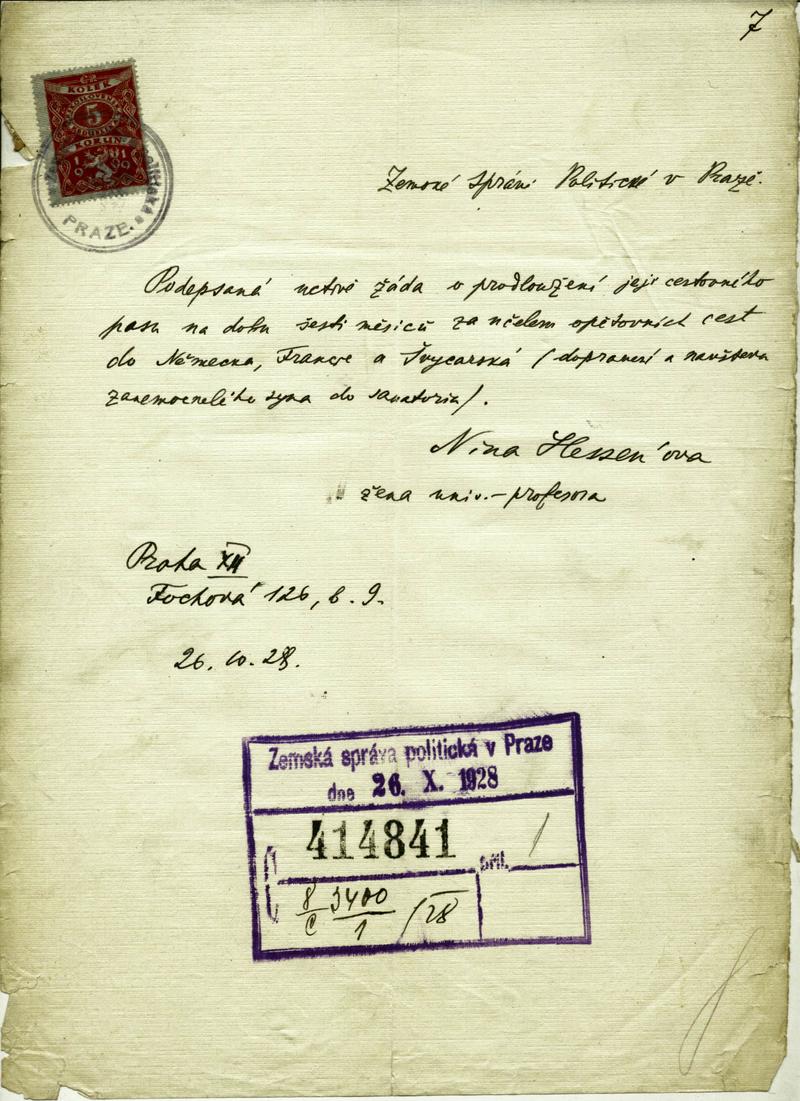 7
KOLEK
5
KORUN
1 9 0 1
PRAZE.
Zemské správě Politické v Praze.
Podepsaná uctivě žáda o prodloužení její cestovního
pasu na dobu šesti měsiců za učelem opětovních cest
do Německa, Francie a Švycarská (dopravení a navštěva
zanemocnelého syna do sanatoria).
Nina Hessen'ova
žena univ.-profesora
Praha XII
Fochová 126, b. 9.
26. 10. 28.
Zemská správa politická v Praze
dne 26. X. 1928
414841
příl. 1
8/C 3400/1 /28